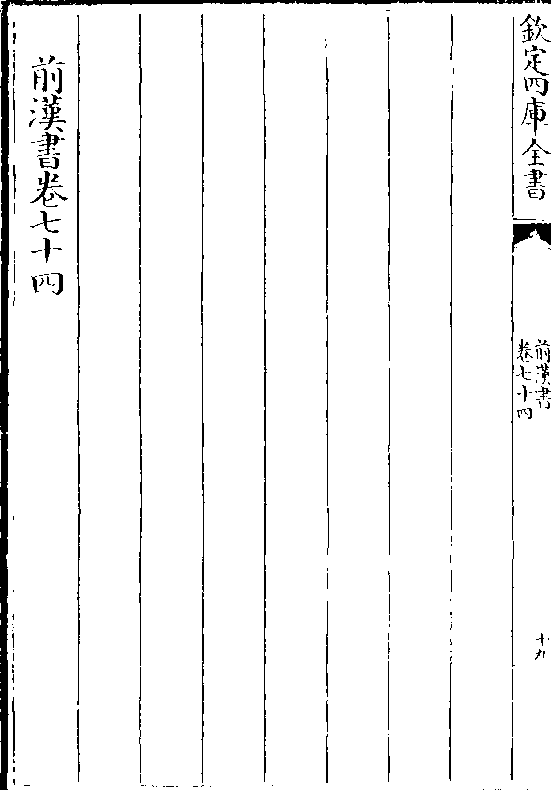 欽定四庫全書
前漢書
卷七十四
十九
前漢書卷七十四